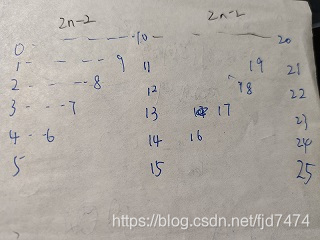 2n-2 2n-2
0 - - - - - - - 10 - - - - - - - 20
1 - - - - - - 9 11 19 21
2 - - - - - 8 12 18 22
3 - - - - 7 13 17 23
4 - - 6 14 16 24
5 15 25
https://blog.csdn.net/fjd7474